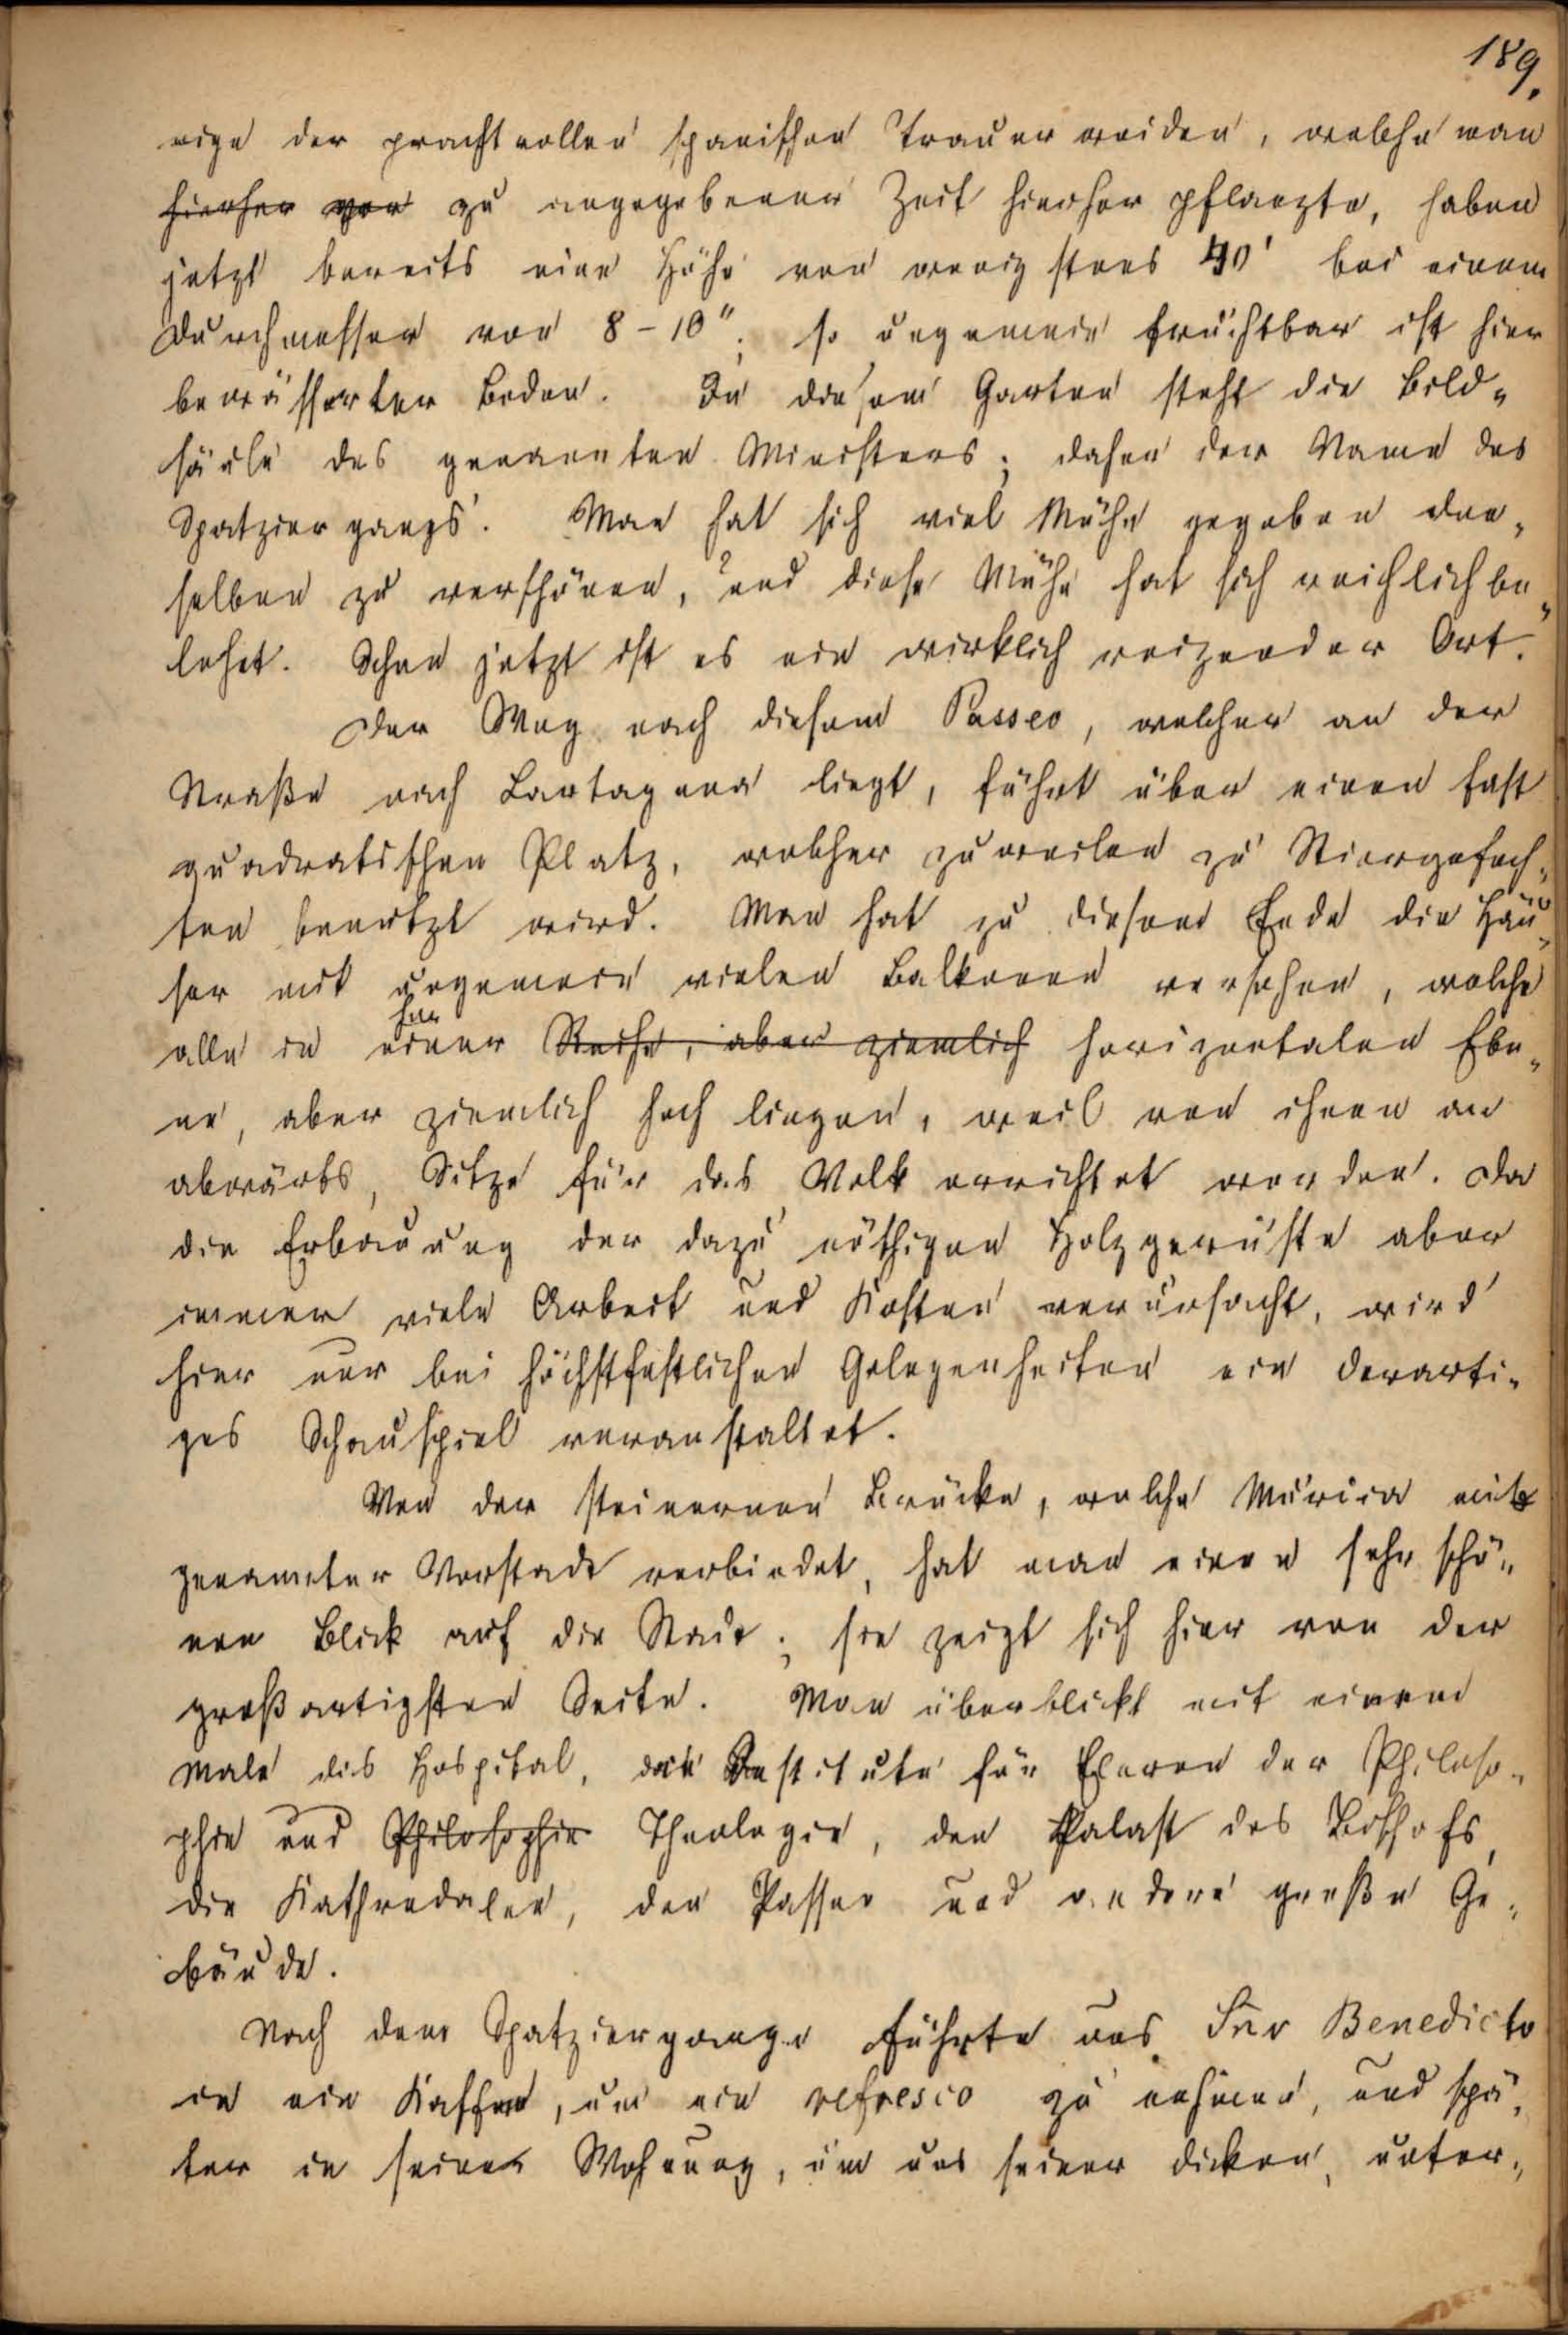 189.
nige der prachtvollen spanischen Trauerweiden, welche man
hierher vor zu angegebener Zeit hierher pflanzte, haben
jetzt bereits eine Höhe von wenigstens 40' bei einem
Durchmesser von 8-10"; so ungemein fruchtbar ist hier
bewässerter Boden. In diesem Garten steht die Bild-
säule des genannten Ministers; daher der Name des
Spatziergangs. Man hat sich viel Mühe gegeben den-
selben zu verschönen, und diese Mühe hat sich reichlich be-
lohnt. Schon jetzt ist es ein wirklich reizender Ort.
Der Weg nach diesem Passeo, welcher an der
Straße nach Cartagena liegt, führt über einen fast
quadratischen Platz, welcher zuweilen zu Stiergefech-
ten benutzt wird. Man hat zu diesem Ende die Häu-
ser mit ungemein vielen Balkonen versehen, welche
alle in einer Reihe, aber ziemlich horizontalen Ebe-
ne, aber ziemlich hoch liegen, weil von ihnen an
abwärts, Sitze für das Volk errichtet werden. Da
die Erbauung der dazu nöthigen Holzgerüste aber
immer viele Arbeit und Kosten verursacht, wird
hier nur bei höchstfestlichen Gelegenheiten ein derarti-
ges Schauspiel veranstaltet.
Von der steinernen Brücke, welche Murcia mit
genannter Vorstadt verbindet, hat man einen sehr schö-
nen Blick auf die Stadt; sie zeigt sich hier von der
großartigsten Seite. Man überblickt mit einem
Male das Hospital, das Institute für Eleven der Philoso-
phie und Philosophie Theologie, den Palast des Bischofs,
die Kathredalen, den Passeo und andere große Ge-
bäude.
Nach dem Spatziergange führte uns Sñr Benedicto
in ein Kaffee, um ein refresco zu nehmen, und spä-
ter in seine Wohnung, um uns seiner dicken, unter-